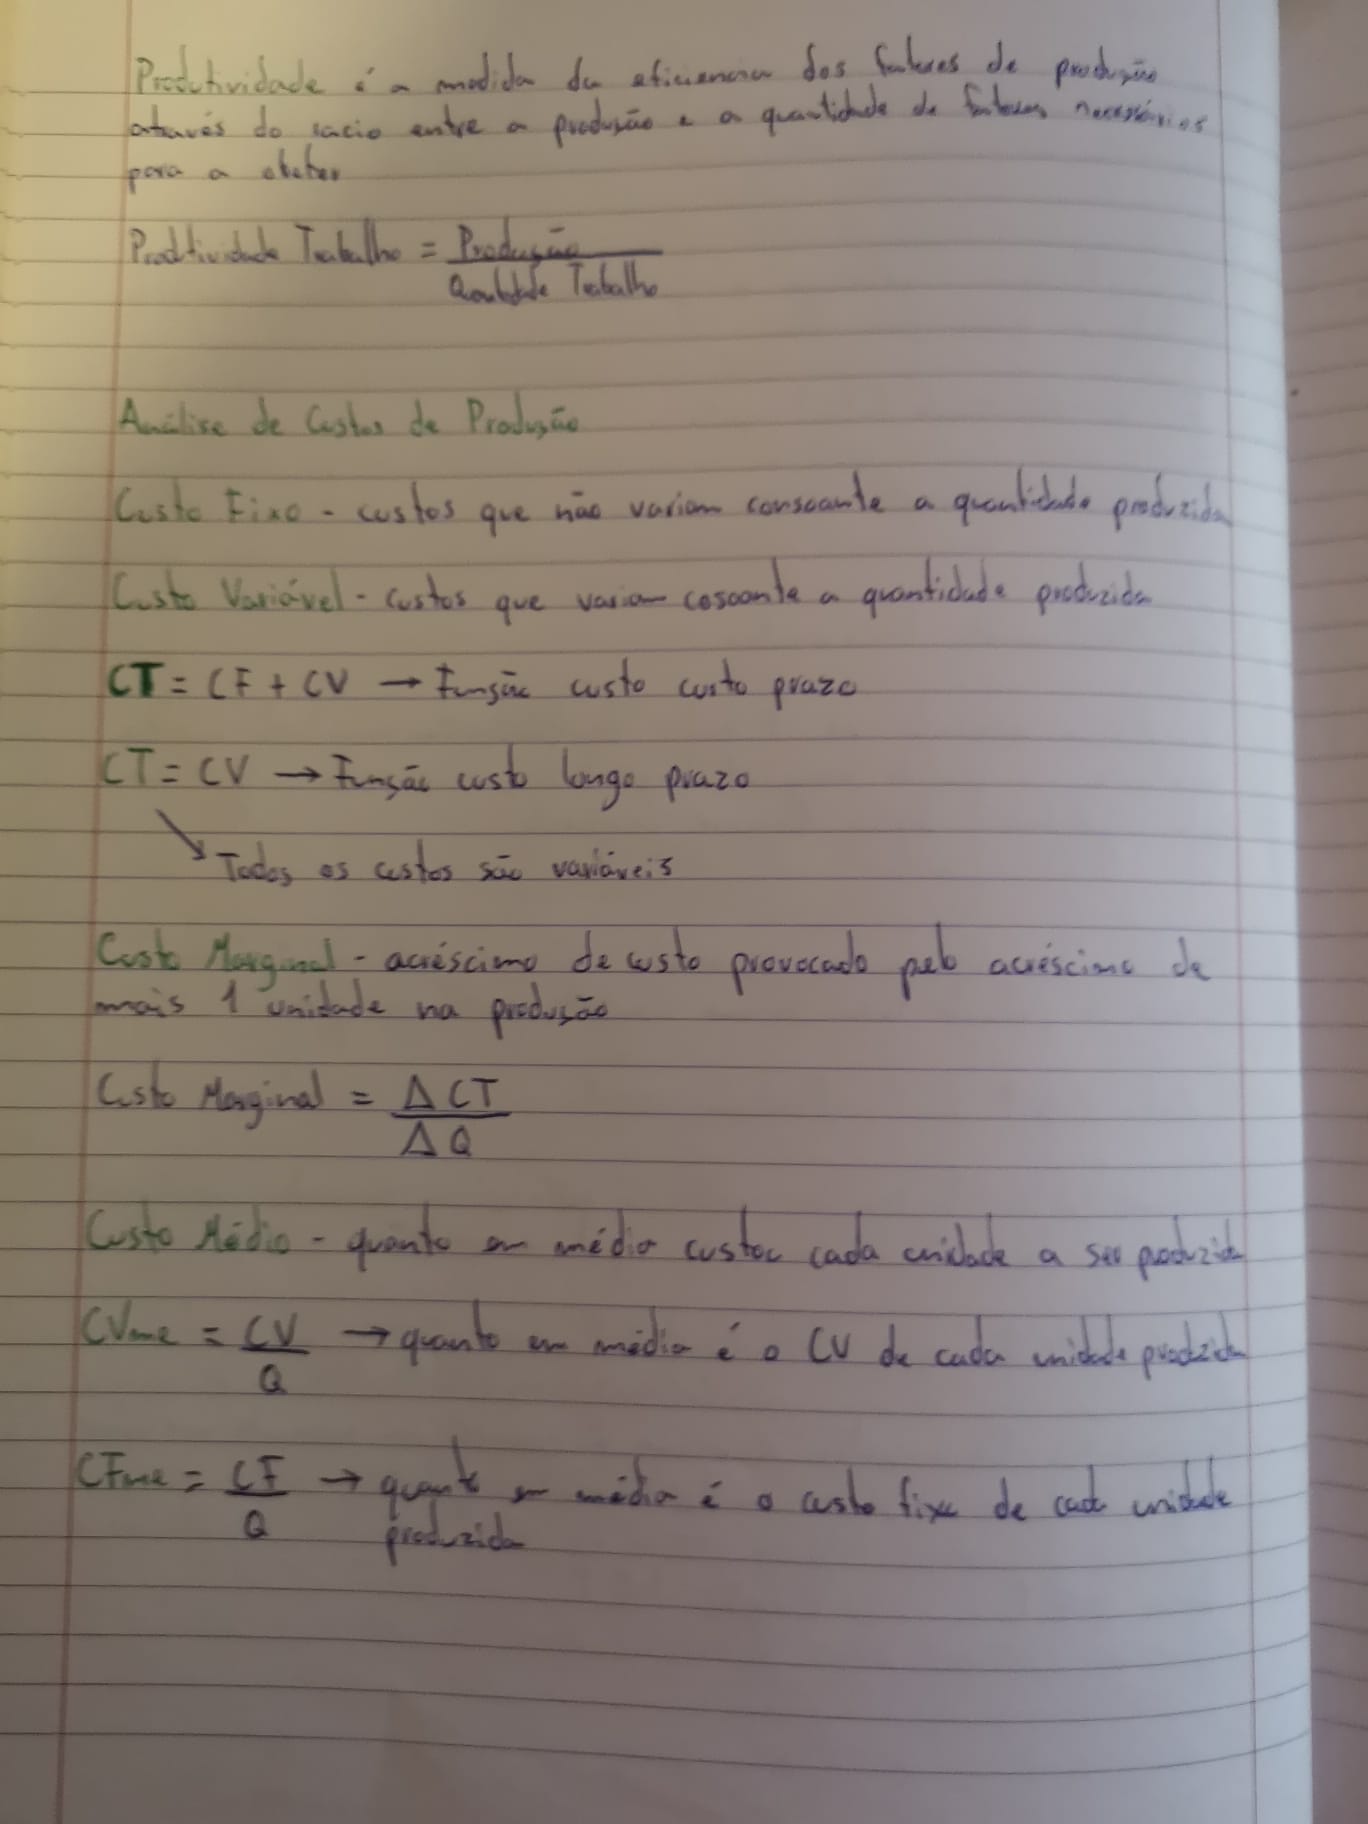 Produtividade é a medida da eficiencia dos fatores de produção
através do racio entre a produção e a quantidade de fatores necessários
para a obter
Prodtividade Trabalho = Produção
Quantidade Trabalho
Análise de Custos de Produção
Custo Fixo - custos que não variam consoante a quantidade produzida
Custo Variável - custos que variam cosoante a quantidade produzida
CT = CF + CV → Função custo curto prazo
CT = CV → Função custo longo prazo
↘ Todos os custos são variáveis
Custo Marginal - acréscimo de custo provocado pelo acréscimo de
mais 1 unidade na produção
Custo Marginal = Δ CT
Δ Q
Custo Médio - quanto em média custou cada unidade a ser produzida
CVme = CV → quanto em média é o CV de cada unidade produzida
Q
CFme = CF → quanto em média é o custo fixo de cada unidade
Q produzida